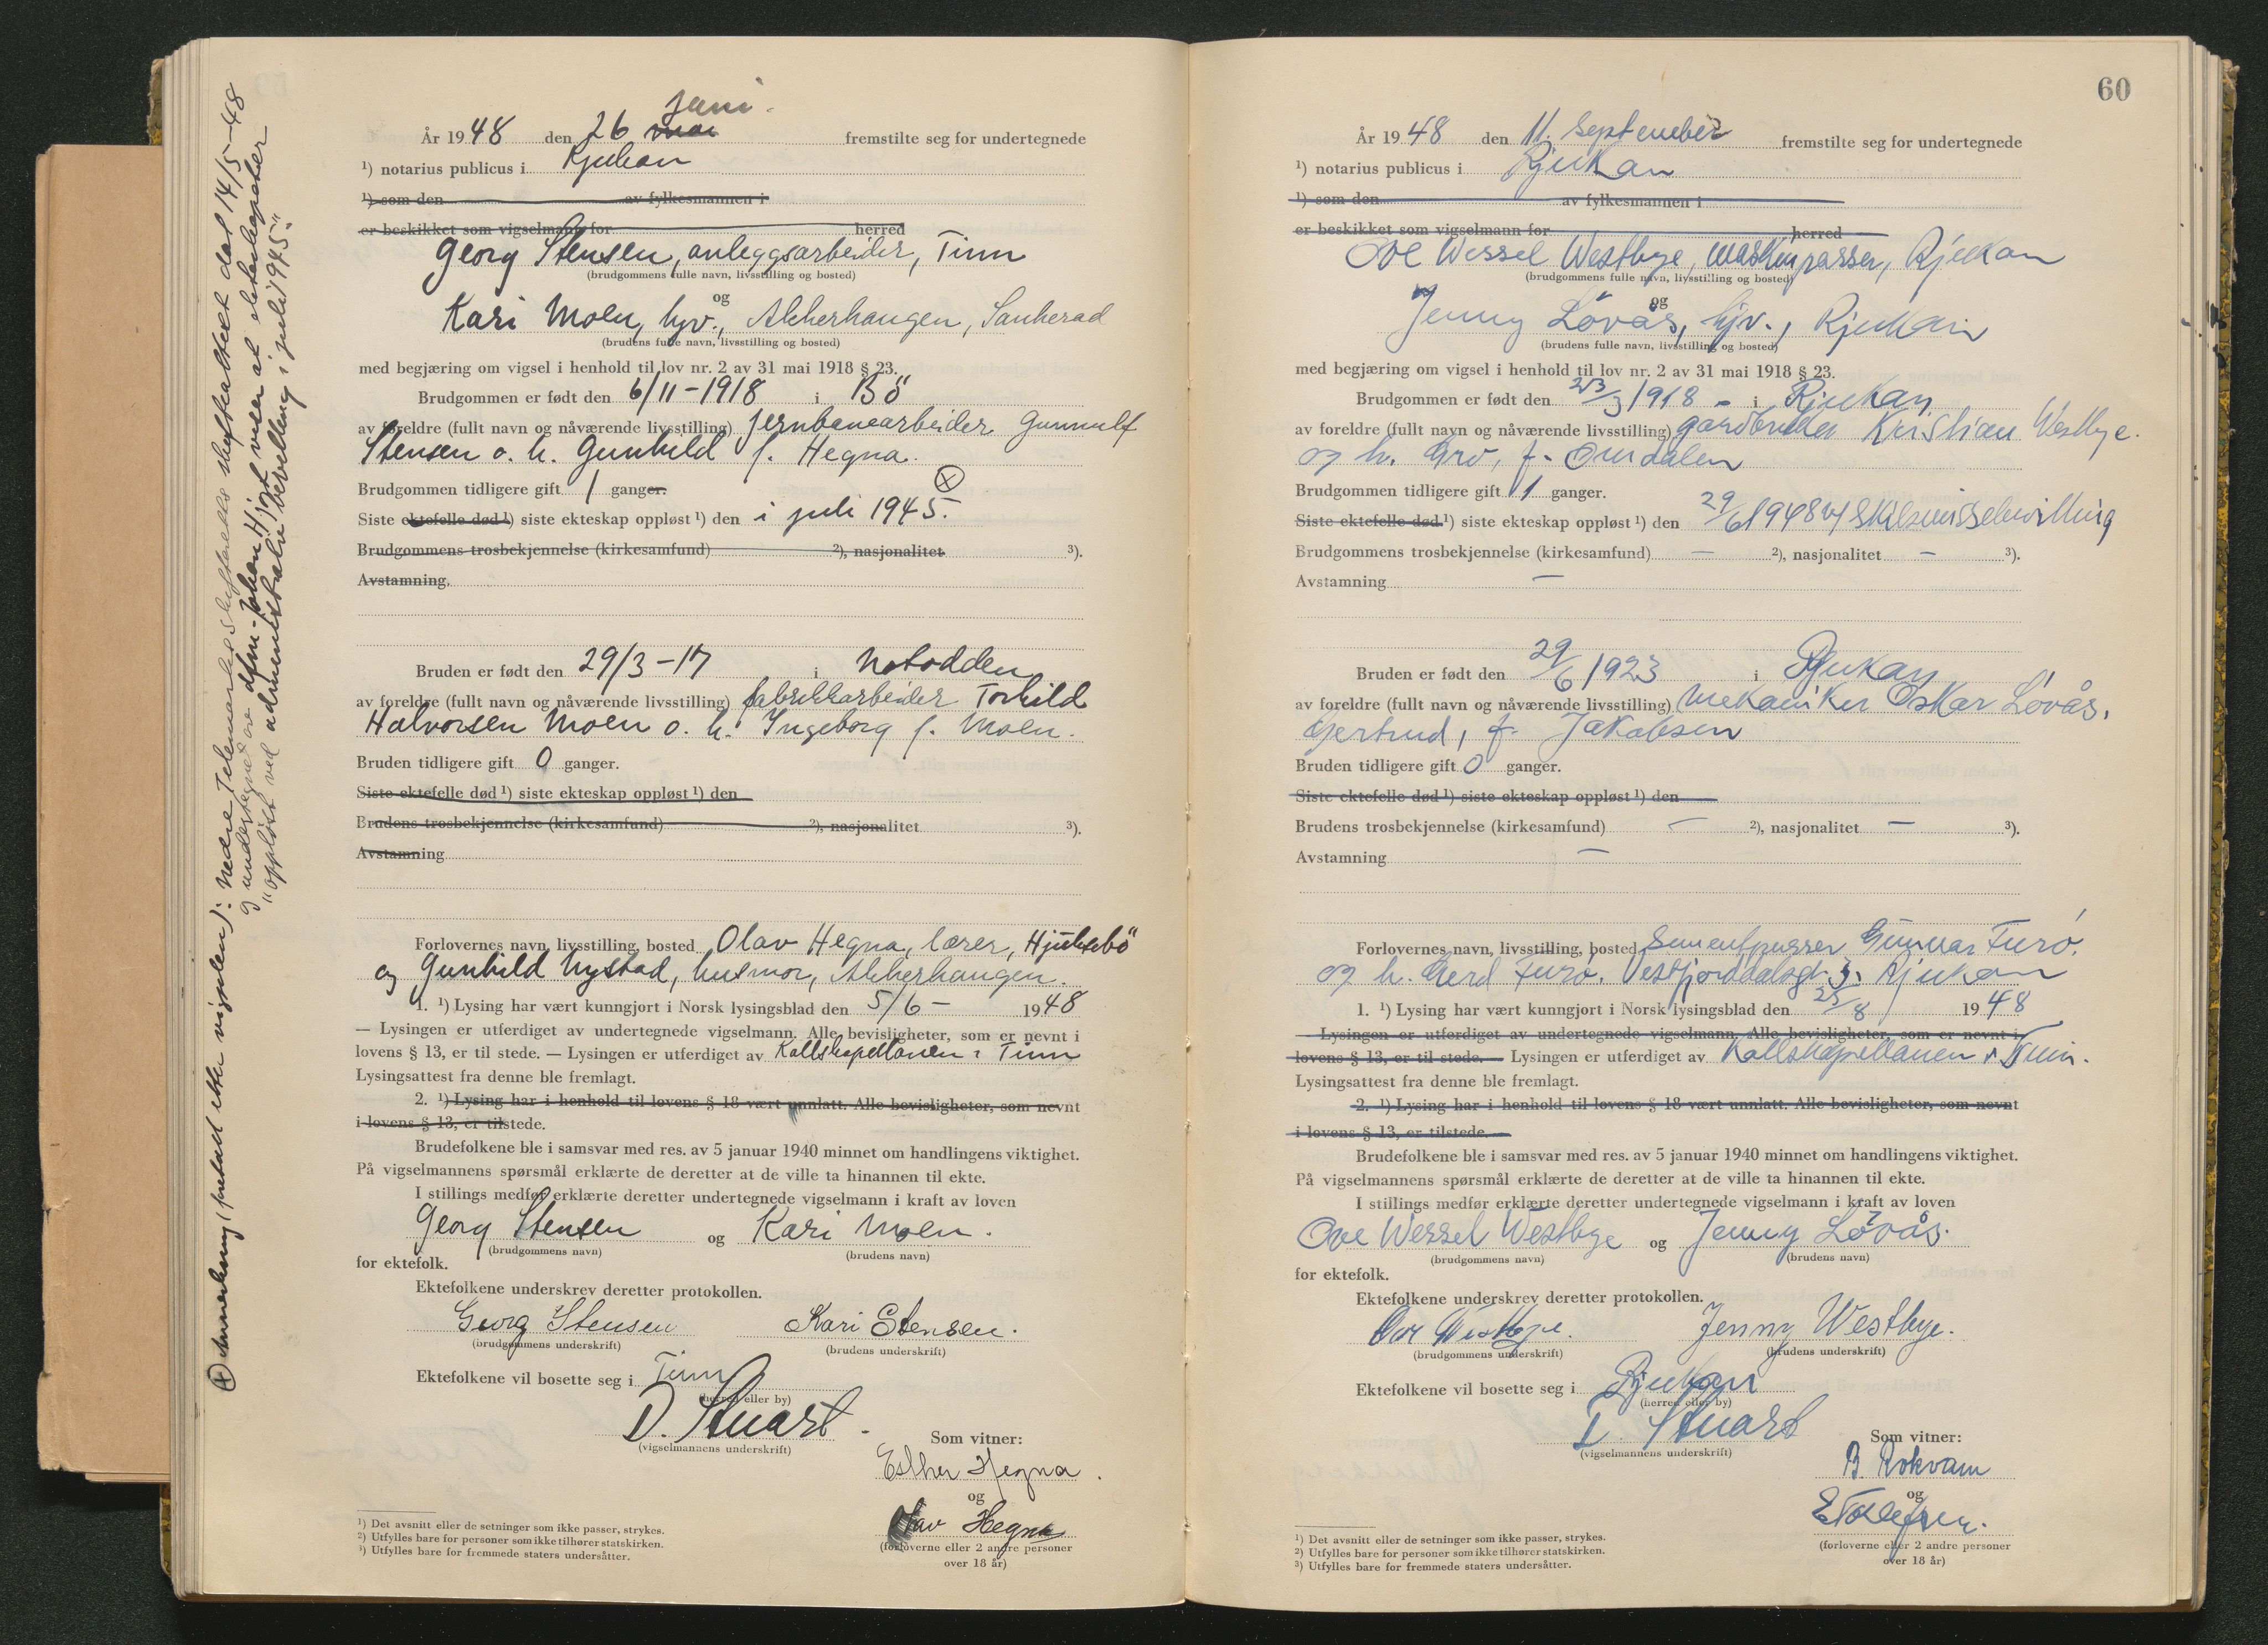 juni.
År 1948 den 26 mai fremstilte seg for undertegnede
¹) notarius publicus i Rjukan
¹) som den av fylkesmannen i
er beskikket som vigselmann for herred
Georg Stensen, anleggsarbeider, Tinn
(brudgommens fulle navn, livsstilling og bosted)
og
Kari Moen, hjv., Akkerhaugen, Sauherad
(brudens fulle navn, livsstilling og bosted)
med begjæring om vigsel i henhold til lov nr. 2 av 31 mai 1918 § 23.
Brudgommen er født den 6/11-1918 i Bö
av foreldre (fullt navn og nåværende livsstilling) jernbanearbeider Gunnulf
Stensen o. h. Gunhild f. Hegna.
Brudgommen tidligere gift 1 ganger.
Siste ektefelle død ¹) siste ekteskap oppløst ¹) den i juli 1945.
Brudgommens trosbekjennelse (kirkesamfund) ²), nasjonalitet ³).
Avstamning
Bruden er født den 29/3-17 i Notodden
av foreldre (fullt navn og nåværende livsstilling) fabrikkarbeider Torkild
Halvorsen Moen o. h. Ingeborg f. Moen.
Bruden tidligere gift 0 ganger.
Siste ektefelle død ¹) siste ekteskap oppløst ¹) den
Brudens trosbekjennelse (kirkesamfund) ²), nasjonalitet ³).
Avstamning
Forlovernes navn, livsstilling, bosted Olav Hegna, lærer, Hjuksebö
og Gunhild Nystad, husmor, Akkerhaugen.
1. ¹) Lysing har vært kunngjort i Norsk lysingsblad den 5/6 - 1948
— Lysingen er utferdiget av undertegnede vigselmann. Alle bevisligheter, som er nevnt i
lovens § 13, er til stede. — Lysingen er utferdiget av Kallskapellanen i Tinn
Lysingsattest fra denne ble fremlagt.
2. ¹) Lysing har i henhold til lovens § 18 vært unnlatt. Alle bevisligheter, som nevnt
i lovens § 13, er tilstede.
Brudefolkene ble i samsvar med res. av 5 januar 1940 minnet om handlingens viktighet.
På vigselmannens spørsmål erklærte de deretter at de ville ta hinannen til ekte.
I stillings medfør erklærte deretter undertegnede vigselmann i kraft av loven
Georg Stensen og Kari Moen.
(brudgommens navn) (brudens navn)
for ektefolk.
Ektefolkene underskrev deretter protokollen.
Georg Stensen Kari Stensen.
(brudgommens underskrift) (brudens underskrift)
Ektefolkene vil bosette seg i Tinn
(herred eller by)
D. Stuart
(vigselmannens underskrift)
Som vitner:
Esther Hegna
og
Olav Hegna
(forloverne eller 2 andre personer
over 18 år)
¹) Det avsnitt eller de setninger som ikke passer, strykes.
²) Utfylles bare for personer som ikke tilhører statskirken.
³) Utfylles bare for fremmede staters undersåtter.
Anmerkning (pretadt etter vigselen): Nedre Telemarks skifteretts skifteattest dat 14/5-48
undertegnede dfm. Johan Hjort viser at ekteskapet er
"oppløst ved administrativ bevilling i juli 1945".
60
År 1948 den 11. September fremstilte seg for undertegnede
¹) notarius publicus i Rjukan
¹) som den av fylkesmannen i
er beskikket som vigselmann for herred
Ove Wessel Westbye, maskinpasser, Rjukan
(brudgommens fulle navn, livsstilling og bosted)
og
Jenny Lövås, hjv., Rjukan
(brudens fulle navn, livsstilling og bosted)
med begjæring om vigsel i henhold til lov nr. 2 av 31 mai 1918 § 23.
Brudgommen er født den 23/3 1918 - i Rjukan
av foreldre (fullt navn og nåværende livsstilling) gårdbruker Kristian Westbye.
og h. Gro, f. Omdalen
Brudgommen tidligere gift 1 ganger.
Siste ektefelle død. ¹) siste ekteskap oppløst ¹) den 29/6 1948 v/ skilsmissebevilling
Brudgommens trosbekjennelse (kirkesamfund) — ²), nasjonalitet — ³).
Avstamning —
Bruden er født den 29/6 1923 i Rjukan
av foreldre (fullt navn og nåværende livsstilling) Mekaniker Oskar Lövås,
Gjertrud, f. Jakobsen
Bruden tidligere gift 0 ganger.
Siste ektefelle død ¹) siste ekteskap oppløst ¹) den
Brudens trosbekjennelse (kirkesamfund) — ²), nasjonalitet — ³).
Avstamning —
Forlovernes navn, livsstilling, bosted Sementpusser Gunnar Furö.
og h. Gerd Furö. Vestfjorddalsgt. 3. Rjukan
1. ¹) Lysing har vært kunngjort i Norsk lysingsblad den 25/8 1948
Lysingen er utferdiget av undertegnede vigselmann. Alle bevisligheter, som er nevnt i
lovens § 13, er til stede. — Lysingen er utferdiget av Kallskapellanen i Tinn.
Lysingsattest fra denne ble fremlagt.
2. ¹) Lysing har i henhold til lovens § 18 vært unnlatt. Alle bevisligheter, som nevnt
i lovens § 13, er tilstede.
Brudefolkene ble i samsvar med res. av 5 januar 1940 minnet om handlingens viktighet.
På vigselmannens spørsmål erklærte de deretter at de ville ta hinannen til ekte.
I stillings medfør erklærte deretter undertegnede vigselmann i kraft av loven
Ove Wessel Westbye og Jenny Lövås.
(brudgommens navn) (brudens navn)
for ektefolk.
Ektefolkene underskrev deretter protokollen.
Ove Westbye. Jenny Westbye.
(brudgommens underskrift) (brudens underskrift)
Ektefolkene vil bosette seg i Rjukan
(herred eller by)
D. Stuart
(vigselmannens underskrift)
Som vitner:
B. Rokvam
og
E Tollefsen.
(forloverne eller 2 andre personer
over 18 år)
¹) Det avsnitt eller de setninger som ikke passer, strykes.
²) Utfylles bare for personer som ikke tilhører statskirken.
³) Utfylles bare for fremmede staters undersåtter.